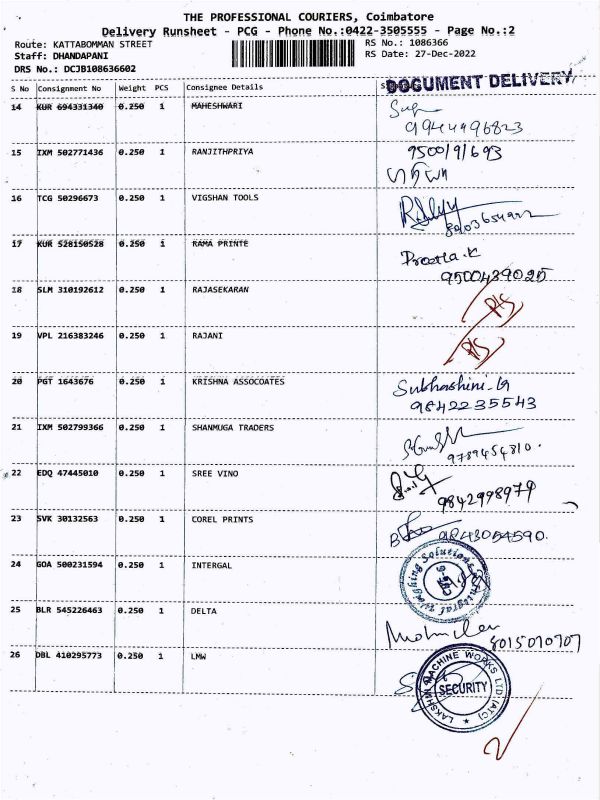 THE PROFESSIONAL COURIERS, Coimbatore
Delivery Runsheet - PCG - Phone No.:0422-3505555 - Page No.:2
Route: KATTABOMMAN STREET RS No.: 1086366
Staff: DHANDAPANI RS Date: 27-Dec-2022
DRS No.: DCJB108636602
S No Consignment No Weight PCS Consignee Details DOCUMENT DELIVERY
14 KUR 694331340 0.250 1 MAHESHWARI
9944496823
15 IXM 502771436 0.250 1 RANJITHPRIYA 9500191693
16 TCG 50296673 0.250 1 VIGSHAN TOOLS
8903654922
17 KUR 528150528 0.250 1 RAMA PRINTE
9500439025
18 SLM 310192612 0.250 1 RAJASEKARAN
19 VPL 216383246 0.250 1 RAJANI
20 PGT 1643676 0.250 1 KRISHNA ASSOCOATES Subhashini.G
9842235543
21 IXM 502799366 0.250 1 SHANMUGA TRADERS
9789454810.
22 EDQ 47445010 0.250 1 SREE VINO
9842998979
23 SVK 30132563 0.250 1 COREL PRINTS
9843054590.
24 GOA 500231594 0.250 1 INTERGAL Integral Weighing Solutions
25 BLR 545226463 0.250 1 DELTA
8015070707
26 DBL 410295773 0.250 1 LMW
LAKSHMI MACHINE WORKS LTD (ATC)
SECURITY